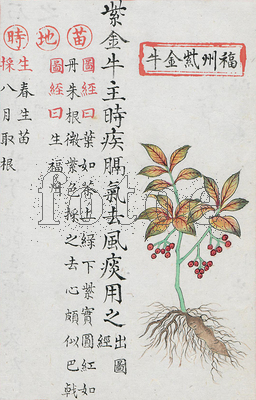 福州紫金牛
紫金牛主時疾膈氣去風痰用之出圖經
苗
圖經曰葉如茶上綠下紫實圓紅如
丹朱根微紫色採之去心頗似巴戟
地
圖經曰生福州
時
生春生苗
採八月取根